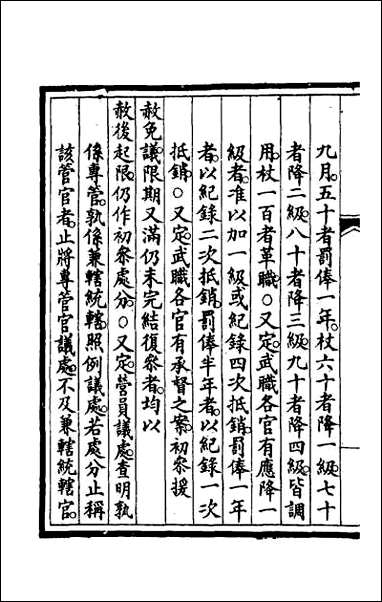 九月五十者罰俸一年杖六十者降一級七十
者降二級八十者降三級九十者降四級皆調
用杖一百者革職○又定武職各官有應降一
級者准以加一級或紀錄四次抵銷罰俸一年
者以紀錄二次抵銷罰俸半年者以紀錄一次
抵銷○又定武職各官有承督之案初參援
赦免議限期又滿仍未完結復參者均以
赦後起限仍作初參處分○又定營員議處查明孰
係專管孰係兼轄統轄照例議處若處分止稱
該管官者止將專管官議處不及兼轄統轄官